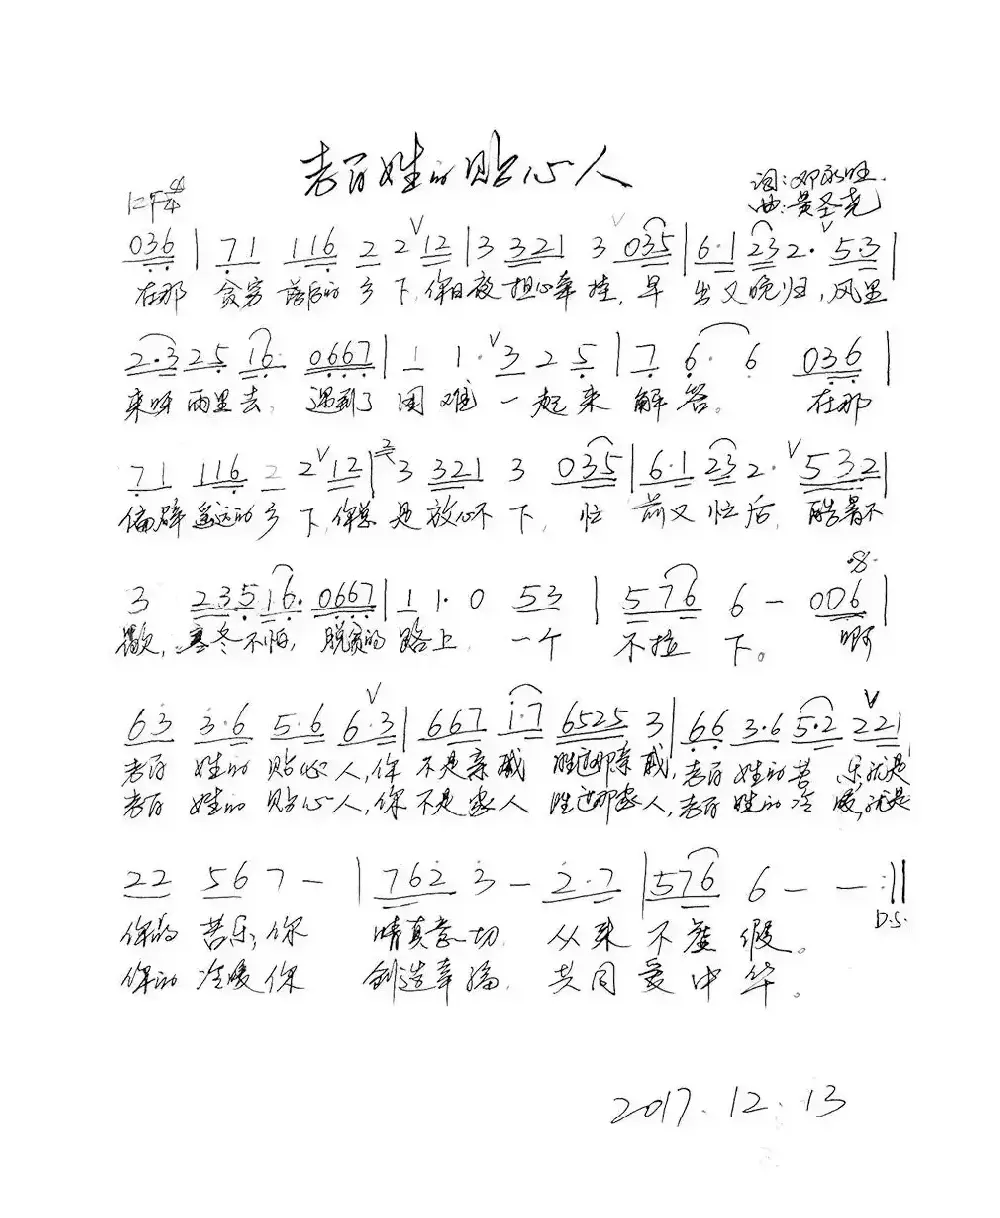 老百姓的贴心人
1=F 4/4
词:邓永旺
曲:黄圣尧
036 | 71 116 2 2 12 | 3 321 3 035 | 6·1 232· 53 |
在那 贫穷 落后的 乡下,你日夜担心牵挂,早出又晚归,风里
2·325 16· 0667 | 1 1· 3 2 5 | 7 6· 6 036 |
来呀雨里去,遇到了困难一起来解答。在那
71 116 2 2 12 | 3 321 3 035 | 6·1 232· 532 |
偏僻遥远的乡下,你总是放心不下,忙前又忙后,酷暑不
3 235 16· 0667 | 1 1· 0 53 | 576 6 - 006 |
歇,寒冬不怕,脱贫的路上,一个不拉下。啊
63 3·6 5·6 6·3 | 667 1·7 6525 3 | 66 3·6 5·2 221
老百姓的贴心人,你不是亲戚胜过那亲戚,老百姓的苦乐,就是
老百姓的贴心人,你不是家人胜过那家人,老百姓的冷暖,就是
22 56 7 - | 762 3 - 2·7 | 576 6 - - :||
你的苦乐,你情真意切,从来不虚假。
D.S.
你的冷暖你创造幸福,共同爱中华。
2017.12.13